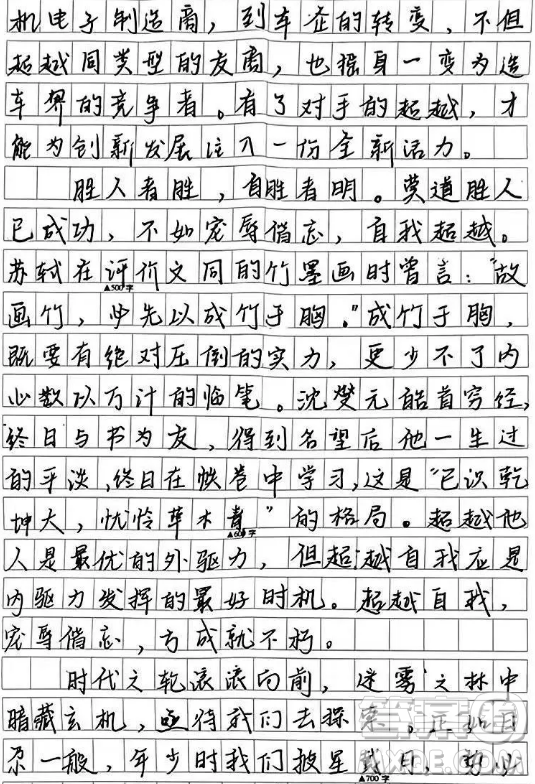 机电子制造商，到车企的转变，不但
超越同类型的友商，也摇身一变为造
车界的竞争者。有了对手的超越，才
能为创新发展注入一份全新活力。
胜人者胜，自胜者明。莫道胜人
已成功，不如宠辱偕忘，自我超越。
苏轼在评价文同的竹墨画时曾言："故
▲500字
画竹，中先以成竹于胸。"成竹于胸，
既要有绝对压倒的实力，更少不了内
心数以万计的临笔。沈燮元皓首穷经，
终日与书为友，得到名望后他一生过
的平淡，终日在帙卷中学习，这是"已识乾
坤大，忧怜草木青"的格局。超越他
▲600字
人是最优的外驱力，但超越自我应是
内驱力发挥的最好时机。超越自我，
宠辱偕忘，方成就不朽。
时代之轮滚滚向前，迷雾之林中
暗藏玄机，亟待我们去探索。正如日
尕一般，年少时我们披星戴月，
▲700字